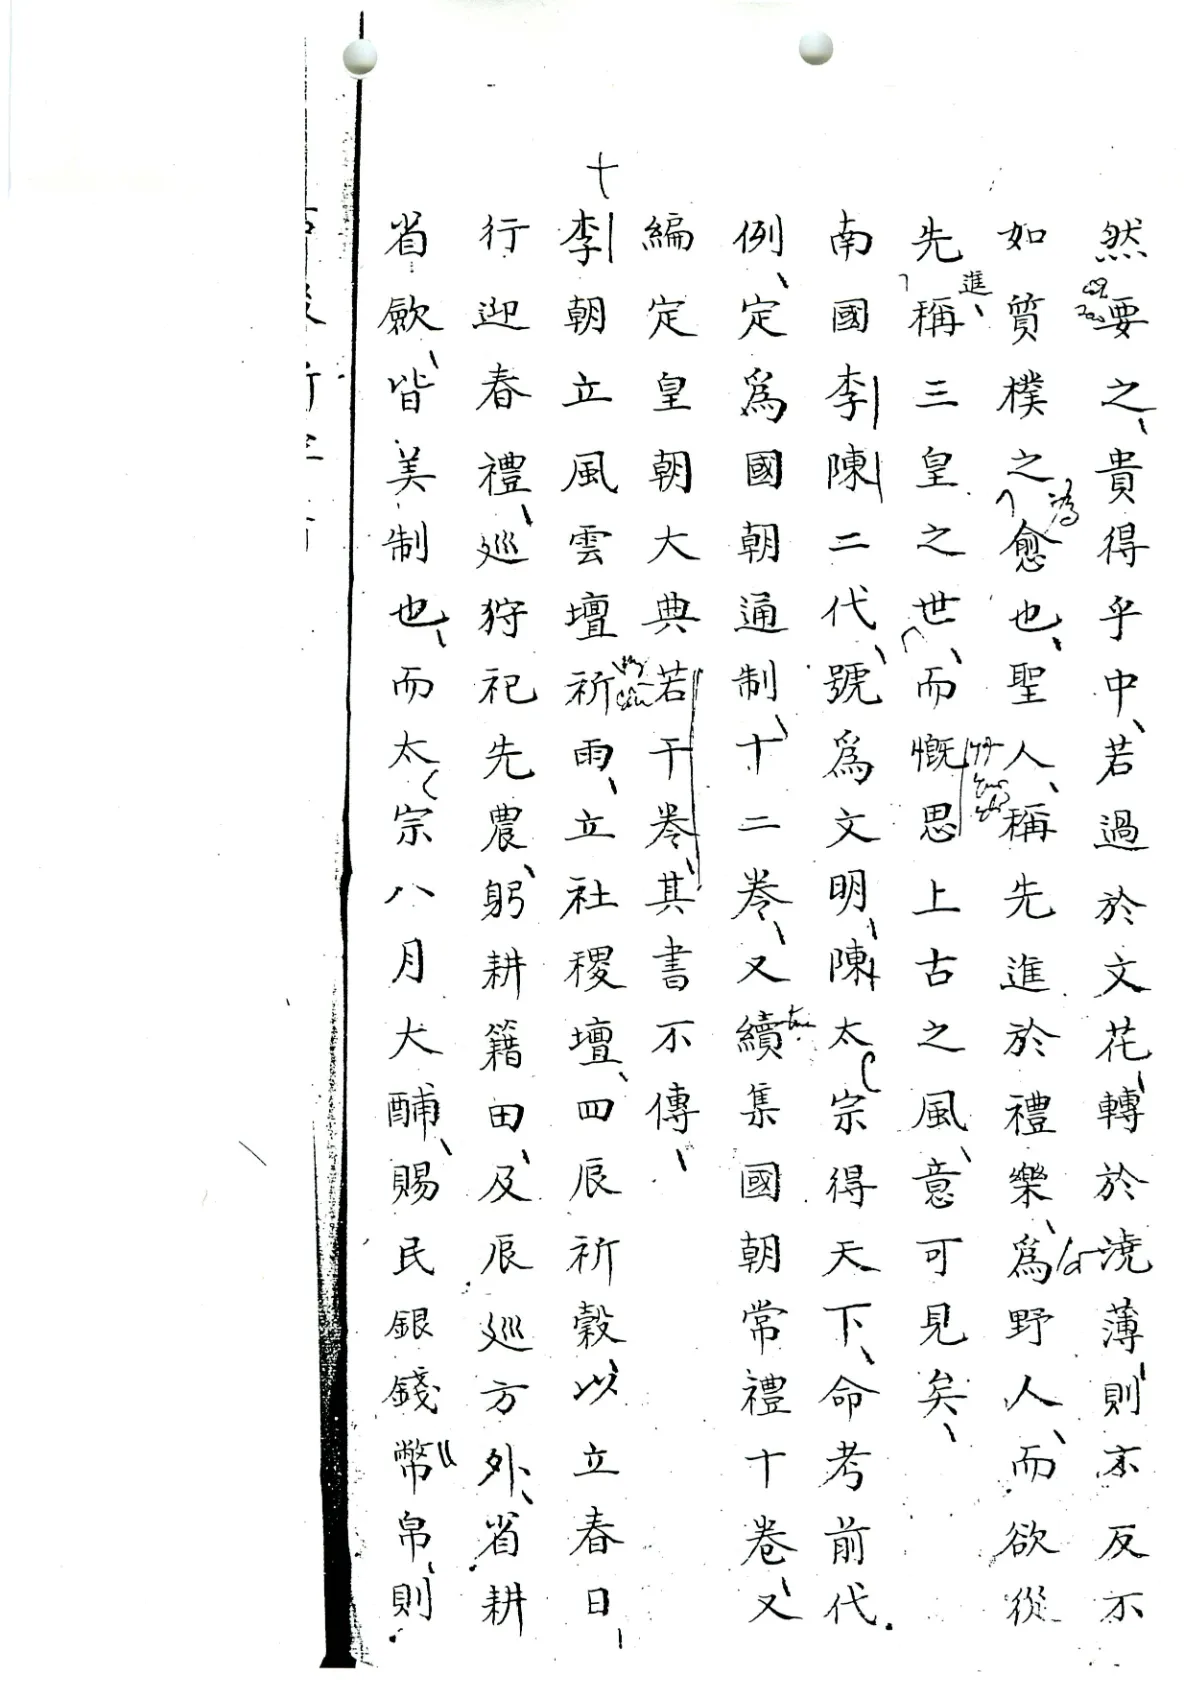 然要之貴得乎中若過於文花轉於澆薄則亦反不
如質樸之愈也聖人稱先進於禮樂為野人而欲從
先進
稱三皇之世而慨思上古之風意可見矣
南國李陳二代號為文明陳太宗得天下命考前代
例定為國朝通制十二卷又續集國朝常禮十卷又
編定皇朝大典若干卷其書不傳
十
李朝立風雲壇祈雨立社稷壇四辰祈穀以立春日
行迎春禮巡狩祀先農躬耕籍田及辰巡方外省耕
省歛皆美制也而太宗八月大酺賜民銀錢幣帛則